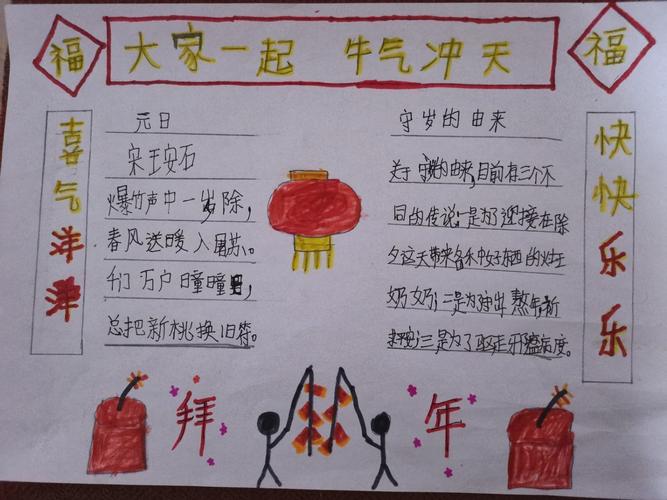 福
大家一起 牛气冲天
福
喜气洋洋
元日
宋王安石
爆竹声中一岁除,
春风送暖入屠苏。
千门万户瞳瞳
总把新桃换旧符。
守岁的由来
关于守岁的由来,目前有三个不
同的传说:一是为了迎接在除
夕这天带来各 好东西的灶王
奶奶;二是为 熬年祈
平安;三是为了驱走邪瘟病疫。
快快乐乐
拜年